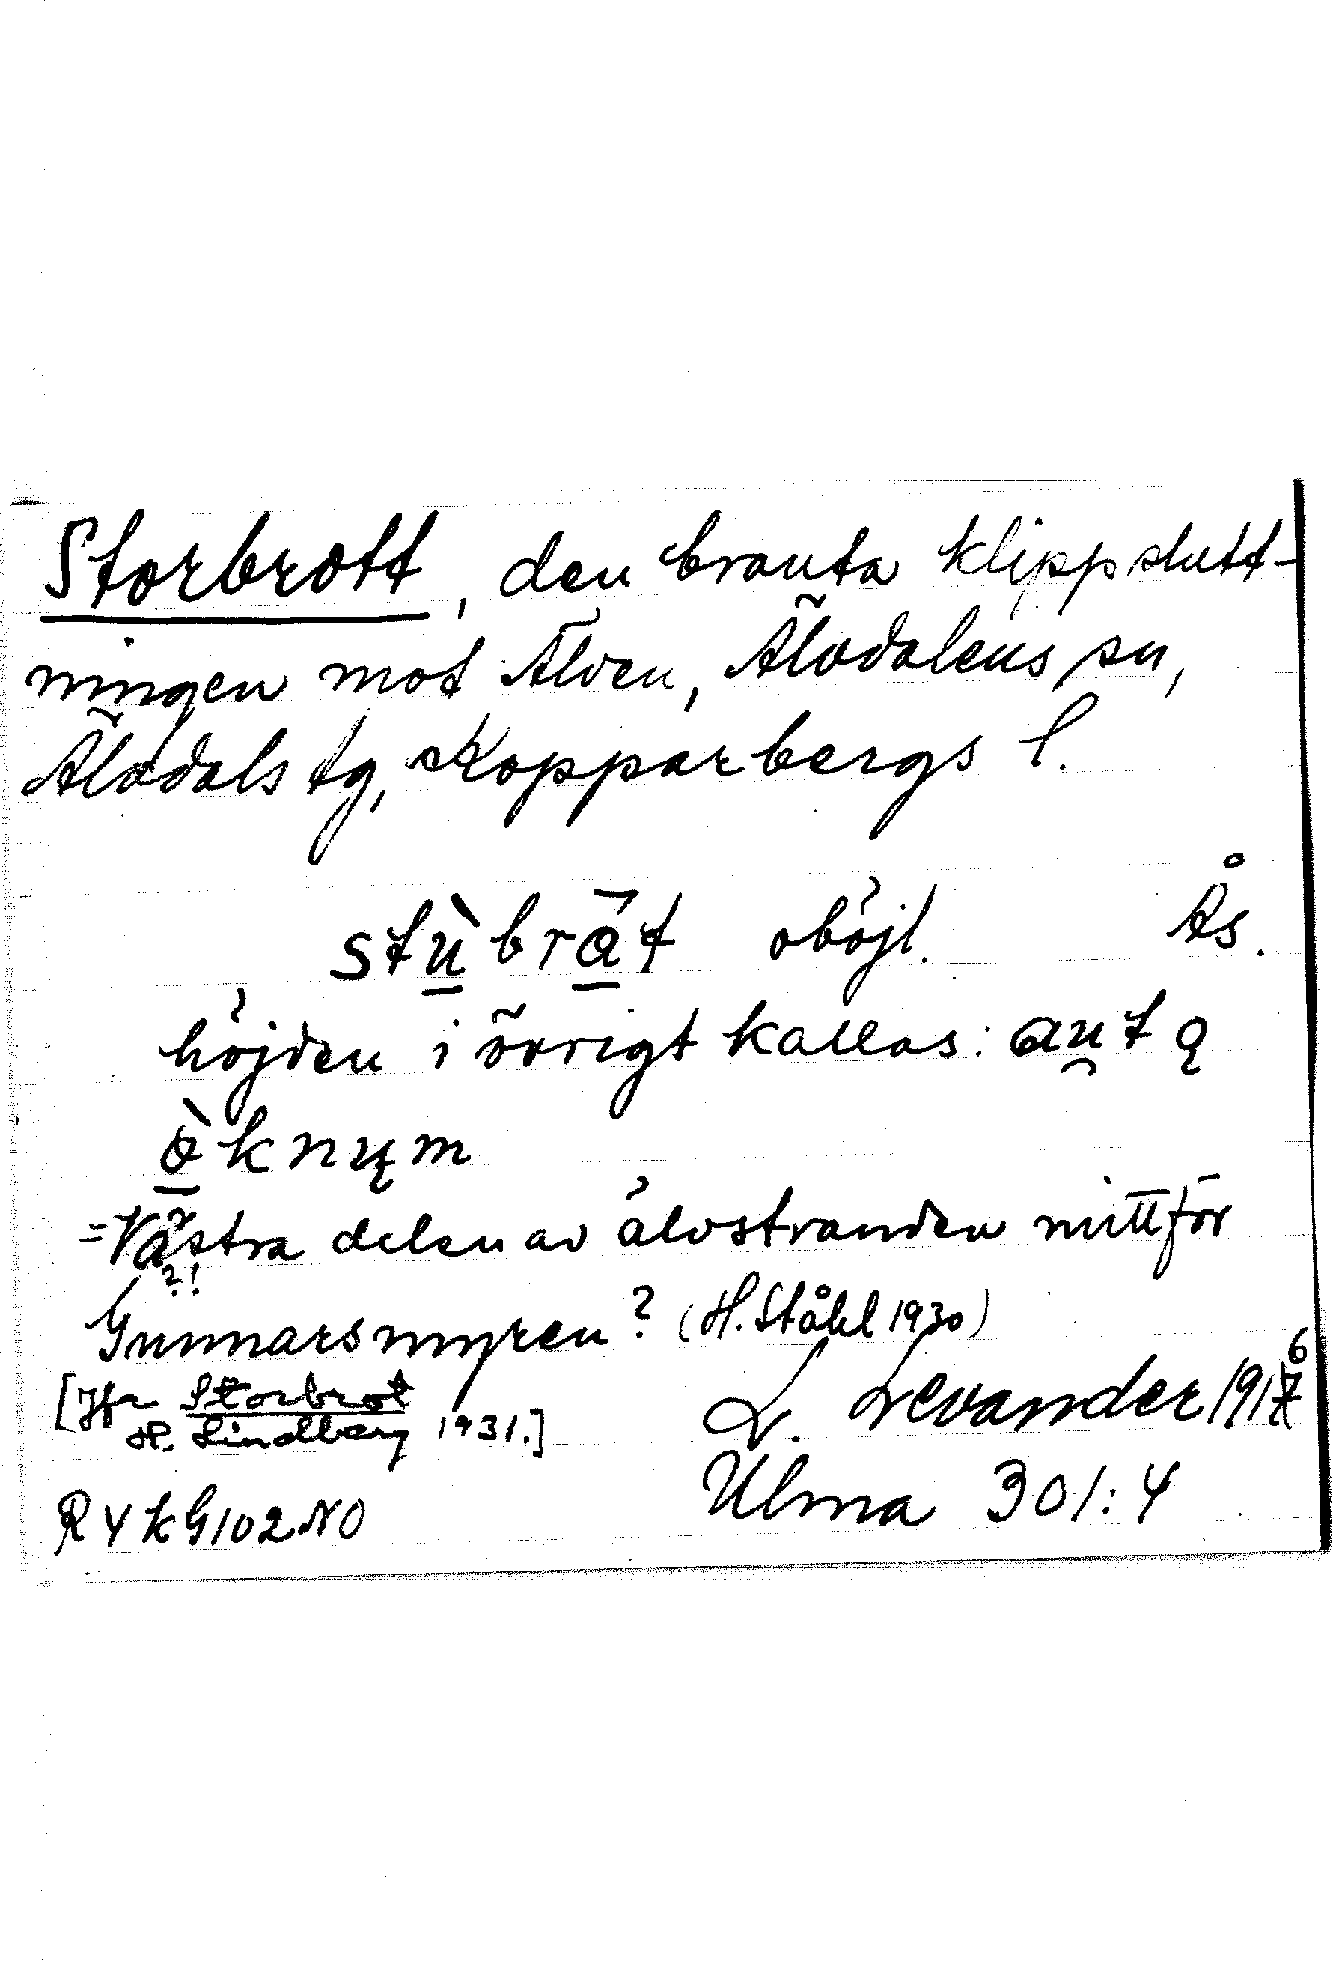 Storbrott, den branta klippslutt-
ningen mot Älven, Älvdalens sn,
Älvdals tg, Kopparbergs l.
stùbrat̄ oböjl. Ås.
höjden i övrigt kallas: aut ǫ
òknųm
=Västra delen av älvstranden mittför
?!
Gunnarsmyren? (H. Ståhl 1930)
[Jfr Storbrot
H. Lindberg 1931.]
L. Levander 1916
R4kG102NO
Ulma 301:4